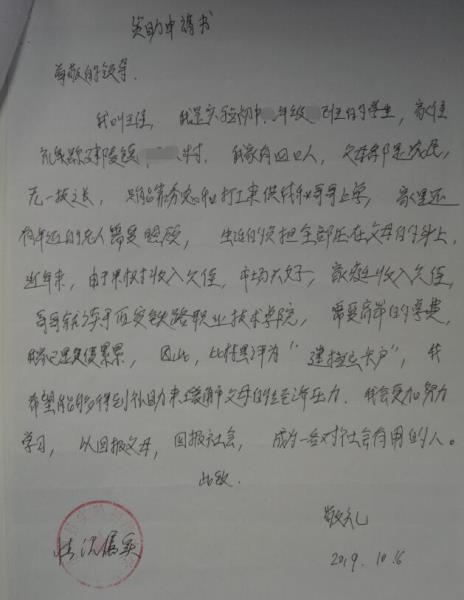 资助申请书
尊敬的领导:
我叫王佳,我是实验初中 年级 班的学生,家住
村。我家有四口人,父母都是农民,
无一技之长,只能靠务农和打工来供我和哥哥上学,家里还
有年迈的老人需要照顾,生活的负担全部压在父母的身上,
近年来,由于果树收入欠佳,市场不好,家庭收入欠佳,
哥哥就读于西安铁路职业技术学院,需要高昂的学费,
家已是负债累累,因此,被评为“建档立卡户”,我
希望能够得到补助来缓解父母的经济压力。我会更加努力
学习,以回报父母,回报社会,成为一名对社会有用的人。
此致.
敬礼
情况属实
2019.10.16